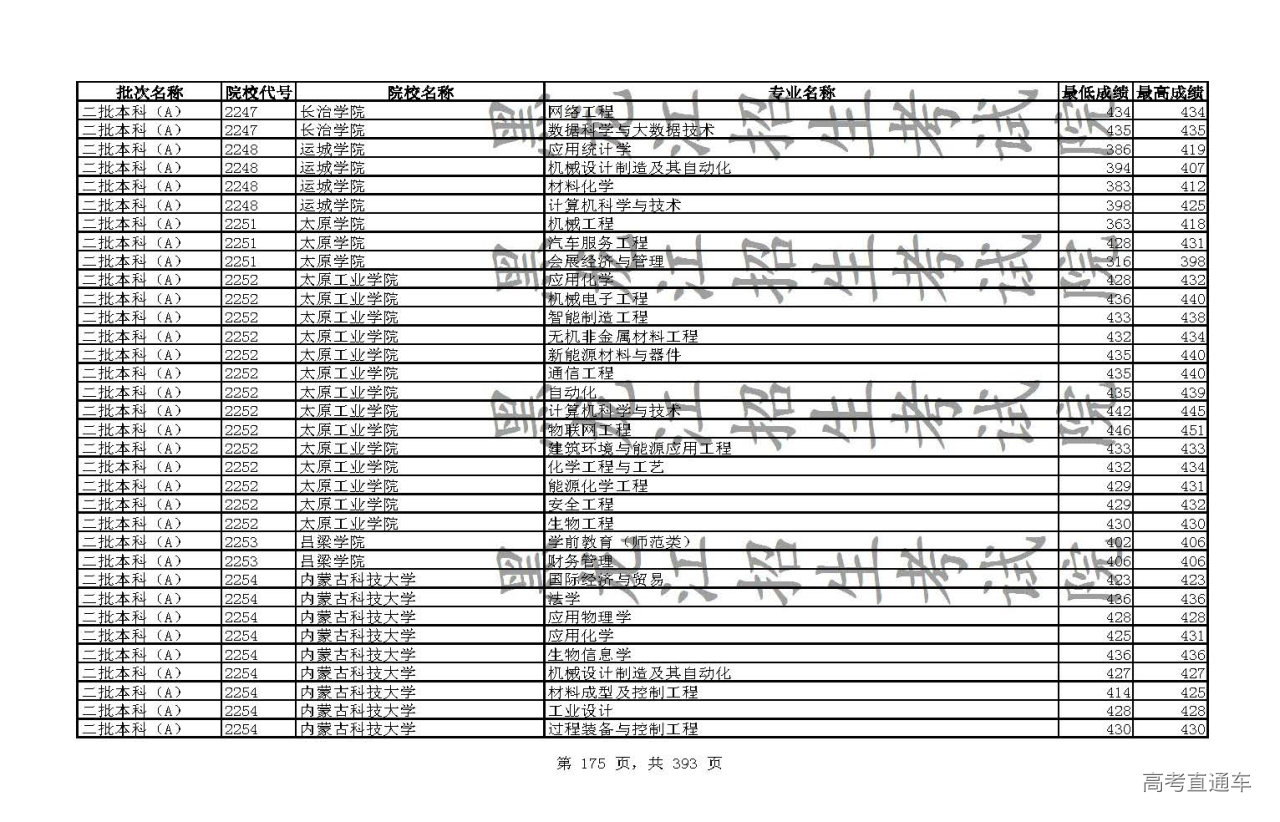 批次名称 院校代号 院校名称 专业名称 最低成绩 最高成绩
二批本科（A） 2247 长治学院 网络工程 434 434
二批本科（A） 2247 长治学院 数据科学与大数据技术 435 435
二批本科（A） 2248 运城学院 应用统计学 386 419
二批本科（A） 2248 运城学院 机械设计制造及其自动化 394 407
二批本科（A） 2248 运城学院 材料化学 383 412
二批本科（A） 2248 运城学院 计算机科学与技术 398 425
二批本科（A） 2251 太原学院 机械工程 363 418
二批本科（A） 2251 太原学院 汽车服务工程 428 431
二批本科（A） 2251 太原学院 会展经济与管理 316 398
二批本科（A） 2252 太原工业学院 应用化学 428 432
二批本科（A） 2252 太原工业学院 机械电子工程 436 440
二批本科（A） 2252 太原工业学院 智能制造工程 433 438
二批本科（A） 2252 太原工业学院 无机非金属材料工程 432 434
二批本科（A） 2252 太原工业学院 新能源材料与器件 435 440
二批本科（A） 2252 太原工业学院 通信工程 435 440
二批本科（A） 2252 太原工业学院 自动化 435 439
二批本科（A） 2252 太原工业学院 计算机科学与技术 442 445
二批本科（A） 2252 太原工业学院 物联网工程 446 451
二批本科（A） 2252 太原工业学院 建筑环境与能源应用工程 433 433
二批本科（A） 2252 太原工业学院 化学工程与工艺 432 434
二批本科（A） 2252 太原工业学院 能源化学工程 429 431
二批本科（A） 2252 太原工业学院 安全工程 429 432
二批本科（A） 2252 太原工业学院 生物工程 430 430
二批本科（A） 2253 吕梁学院 学前教育（师范类） 402 406
二批本科（A） 2253 吕梁学院 财务管理 406 406
二批本科（A） 2254 内蒙古科技大学 国际经济与贸易 423 423
二批本科（A） 2254 内蒙古科技大学 法学 436 436
二批本科（A） 2254 内蒙古科技大学 应用物理学 428 428
二批本科（A） 2254 内蒙古科技大学 应用化学 425 431
二批本科（A） 2254 内蒙古科技大学 生物信息学 436 436
二批本科（A） 2254 内蒙古科技大学 机械设计制造及其自动化 427 427
二批本科（A） 2254 内蒙古科技大学 材料成型及控制工程 414 425
二批本科（A） 2254 内蒙古科技大学 工业设计 428 428
二批本科（A） 2254 内蒙古科技大学 过程装备与控制工程 430 430
黑龙江招生考试院
黑龙江招生考试院
黑龙江招生考试院
黑龙江招生考试院
第 175 页，共 393 页
高考直通车